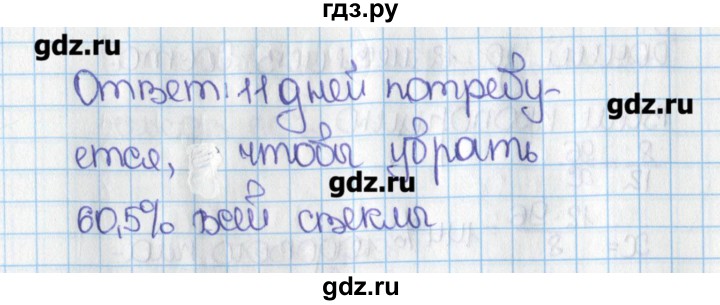 гдз.ру
gdz.ru
Ответ: 11 дней потребу-
gdz.ru
ется, чтобы убрать
gdz.ru
60,5% всей свеклы
gdz.ru